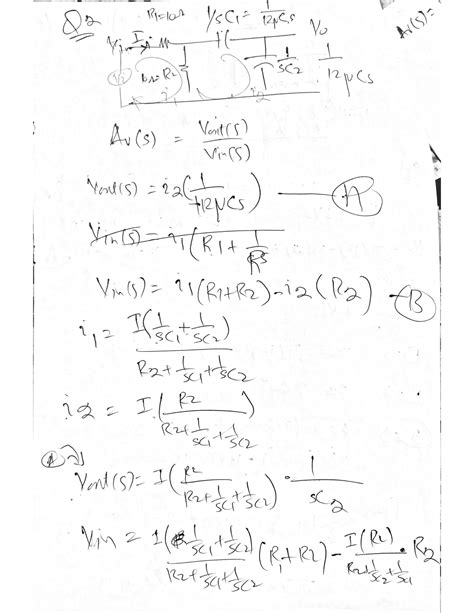 Q2 R1=10Ω 1/sC1 = 1/12μCs Av(s)=
Vin I Vo
R2 i1 i2 1/sC2 1/12μCs
Av(s) = Vout(s)/Vin(s)
Vout(s) = i2(1/12μCs) — A
Vin(s) = i1(R1+
Vin(s) = i1(R1+R2) - i2(R2) - B
i1 = I(1/sC1 + 1/sC2)/(R2 + 1/sC1 + 1/sC2)
i2 = I(R2/(R2 + 1/sC1 + 1/sC2))
A ⇒
Vout(s) = I(R2/(R2 + 1/sC1 + 1/sC2)) · 1/sC2
Vin = I(1/sC1 + 1/sC2)/(R2 + 1/sC1 + 1/sC2) (R1+R2) - I(R2)/(R2 + 1/sC2 + 1/sC1) · R2